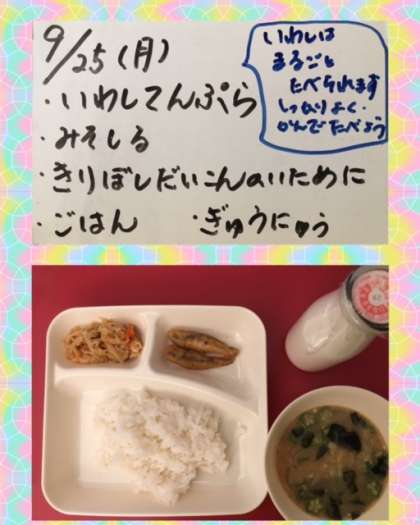 9/25(月)
・いわしてんぷら
・みそしる
・きりぼしだいこんのいために
・ごはん ・ぎゅうにゅう
いわしは
まるごと
たべられます
しっかりよく
かんでたべよう